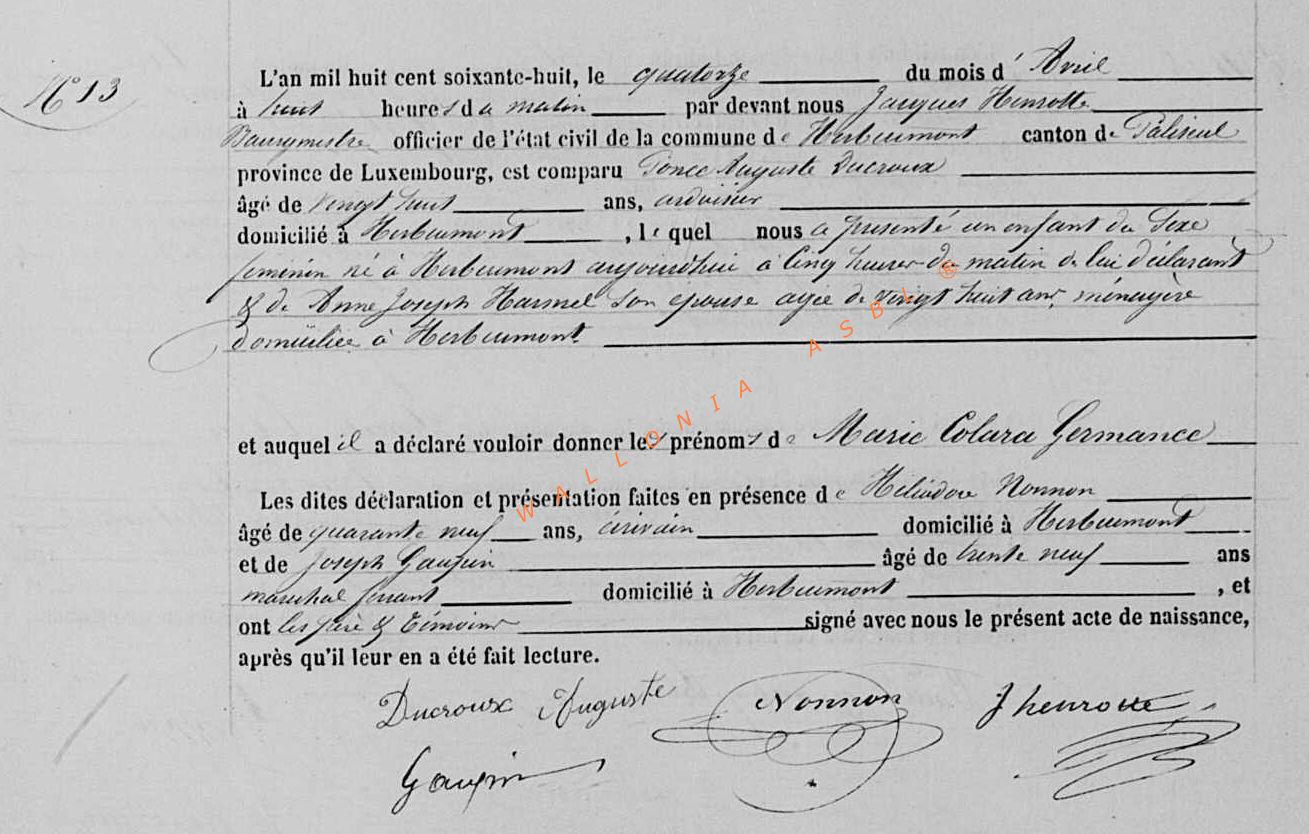 N° 13
L'an mil huit cent soixante-huit, le quatorze du mois d'Avril
à huit heures da matin par devant nous Jacques Henrotte
Bourgmestre officier de l'état civil de la commune de Herbeumont canton de Paliseul
province de Luxembourg, est comparu Ponce Auguste Ducroux
âgé de vingt huit ans, ardoisier
domicilié à Herbeumont, lequel nous a présenté un enfant du Sexe
feminin né à Herbeumont aujourdhui à Cinq heures du matin de lui déclarant
& de Anne Joseph Harmel son epouse agée de vingt huit ans ménagère
domiciliée à Herbeumont
et auquel il a déclaré vouloir donner les prénoms de Marie Colara Germance
Les dites déclaration et présentation faites en présence de Héliodore Nonnon
âgé de quarante neuf ans, écrivain domicilié à Herbeumont
et de Joseph Gaupin âgé de trente neuf ans
maréchal ferrant domicilié à Herbeumont, et
ont les père & témoins signé avec nous le présent acte de naissance,
après qu'il leur en a été fait lecture.
Ducroux Auguste Nonnon J henrotte
Gaupin
WALLONIA ASBL ®